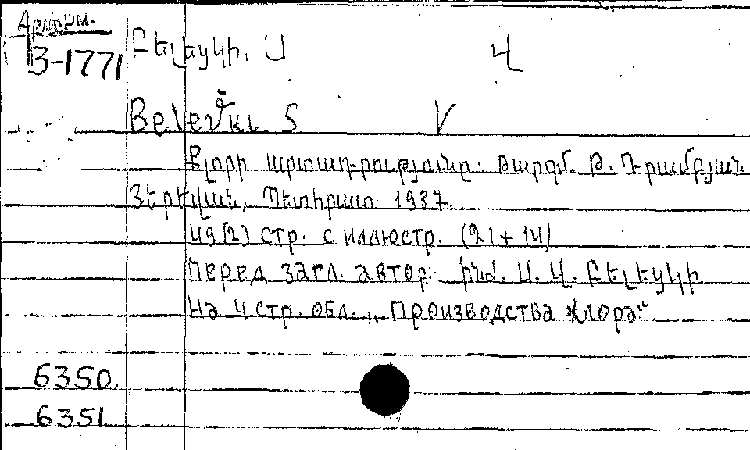 Армян.
З-1771
Բելեցկի, Ս Վ
Belecki S V
Քլորի արտադրությունը. Թարգմ. Թ. Ղրամբյան.
Յերեվան, Պետհրատ 1937.
49[2] стр. с иллюстр. (21+14)
Перед загл. автор: ինժ. Ս. Վ. Բելեցկի
На 4 стр. обл.: „Производства хлора“
6350.
6351.